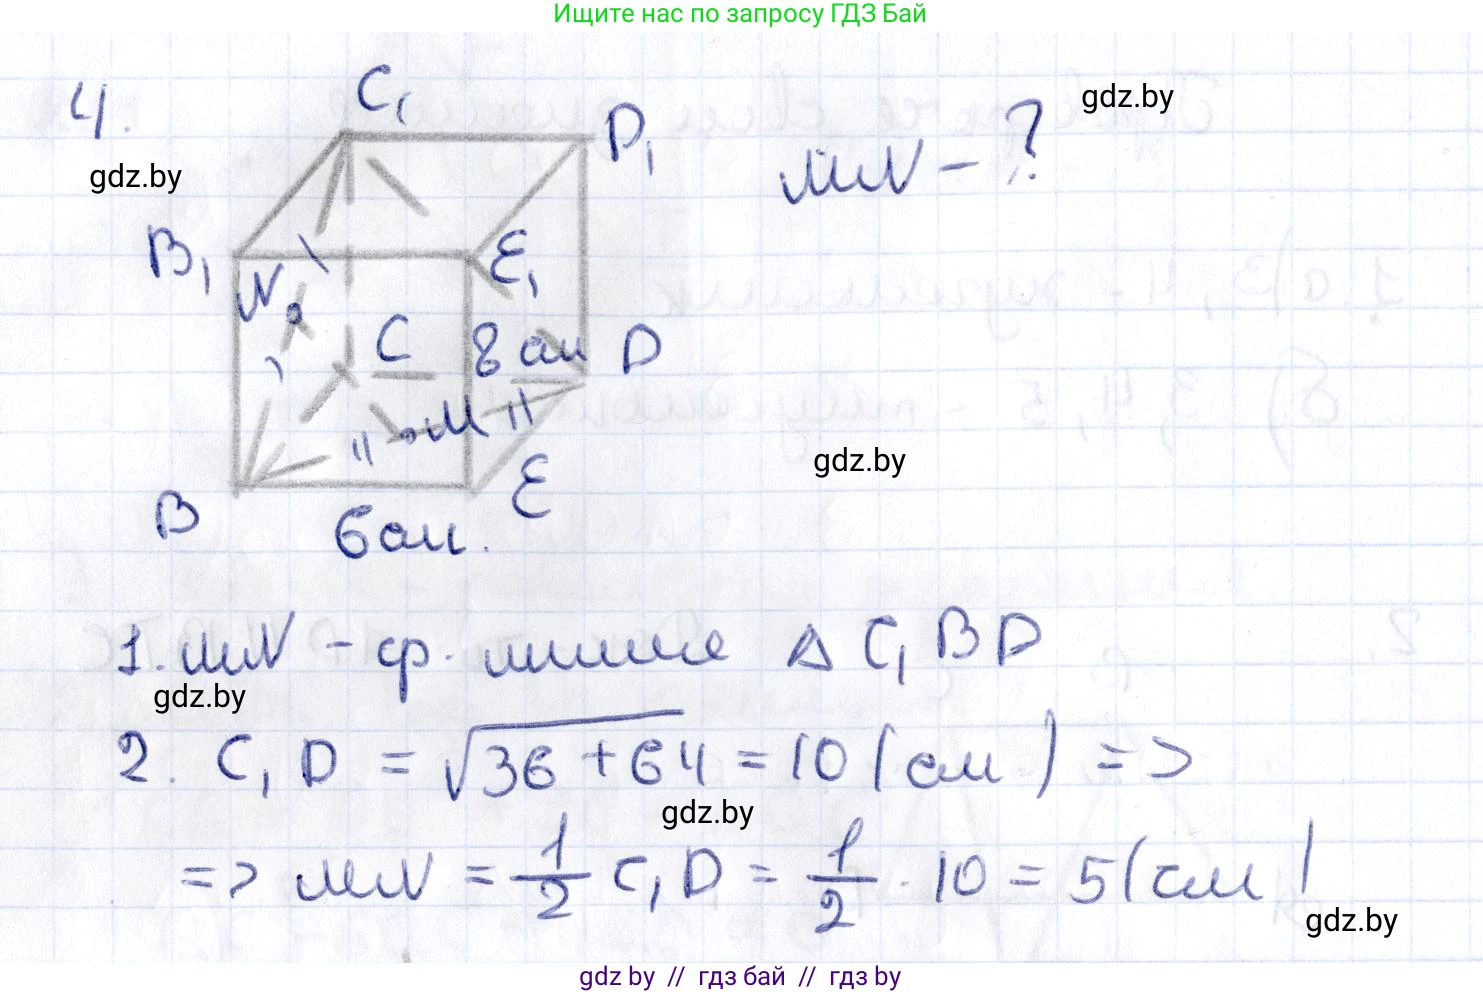 Ищите нас по запросу ГДЗ Бай
4.
C₁
D₁
gdz.by
MN - ?
gdz.by
B₁
E₁
N
C
8 см
D
M
gdz.by
B
E
6 см.
1. MN - ср. линия Δ C₁BD
gdz.by
2. C₁D = √36 + 64 = 10 (см) =>
gdz.by
=> MN = 1/2 C₁D = 1/2 · 10 = 5 (см)
gdz.by
gdz by // гдз бай // гдз by